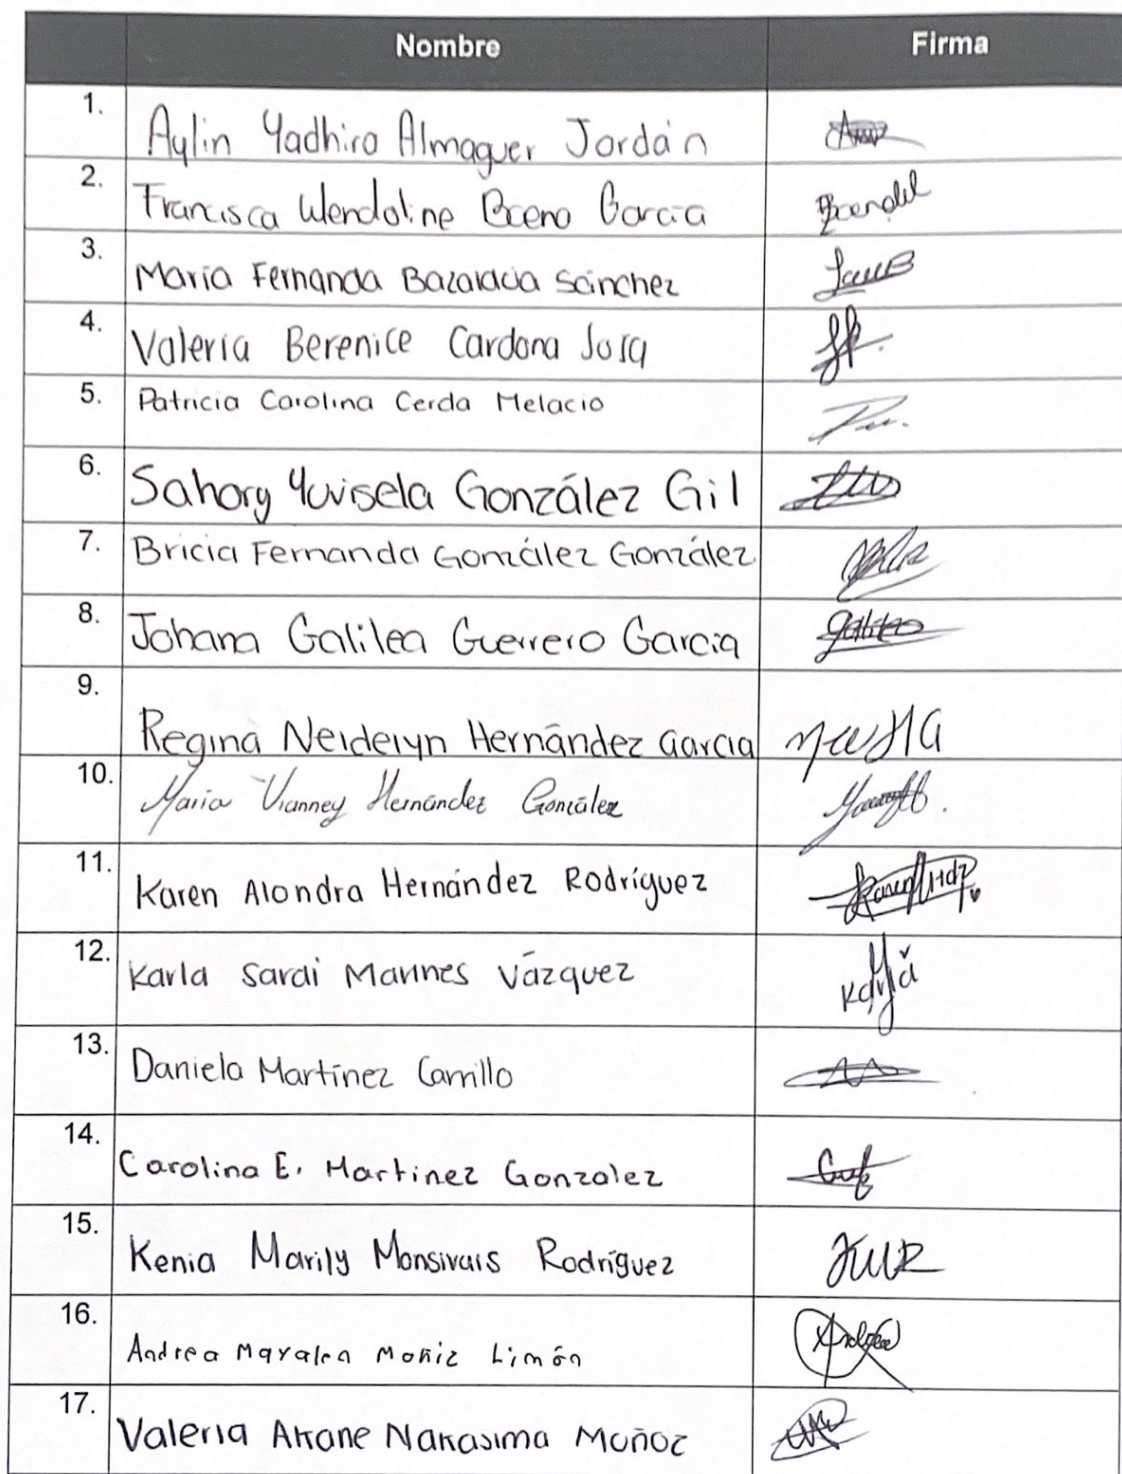 Nombre Firma
1. Aylin Yadhira Almaguer Jordán
2. Francisca Wendoline Baena García
3. María Fernanda Bazaldúa Sánchez
4. Valeria Berenice Cardona Sosa
5. Patricia Carolina Cerda Melacio
6. Sahory Yuvisela González Gil
7. Bricia Fernanda González González
8. Johana Galilea Guerrero Garcia Galilea
9. Regina Neidelyn Hernández García
10. Maria Vianney Hernández González
11. Karen Alondra Hernández Rodríguez Karen Hdz
12. Karla Sarai Marines Vázquez Karla
13. Daniela Martínez Carrillo
14. Carolina E. Martinez Gonzalez
15. Kenia Marily Monsivais Rodríguez
16. Andrea Mayalen Moñiz Limón
17. Valeria Akane Nakasima Muñoz